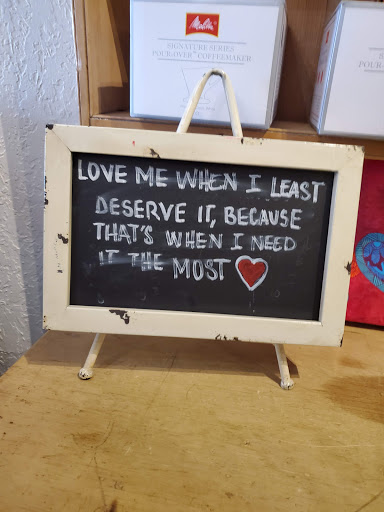 Melitta
SIGNATURE SERIES
POUR-OVER™ COFFEEMAKER
LOVE ME WHEN I LEAST
DESERVE IT, BECAUSE
THAT'S WHEN I NEED
IT THE MOST